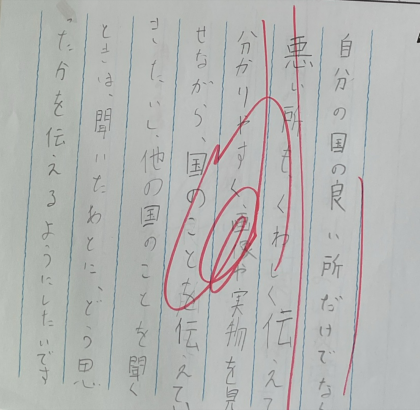 自分の国の良い所だけでな
悪い所もくわしく伝えて
分かりやすく、や実物を見
せながら、国のことを伝えてい
きたいし、他の国のことを聞く
ときは、聞いたあとに、どう思
ったかを伝えるようにしたいです